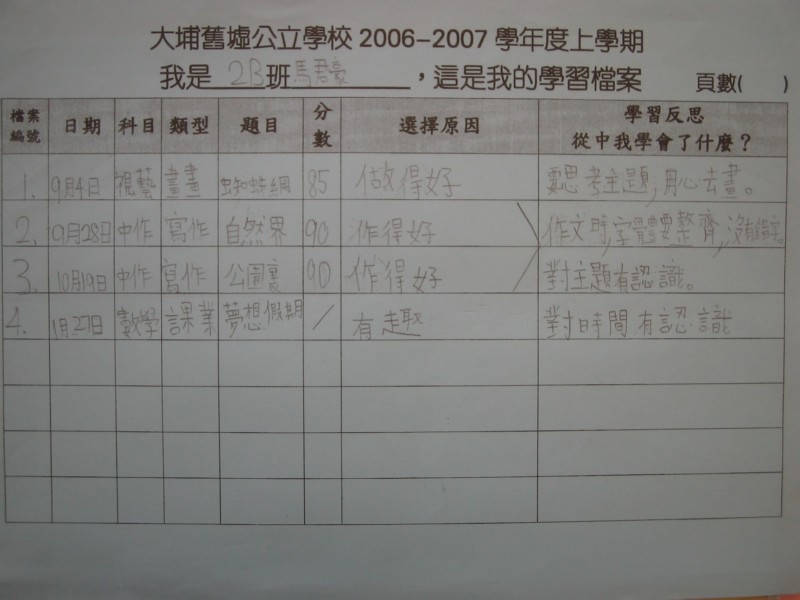 大埔舊墟公立學校 2006-2007 學年度上學期
我是 2B班馬君豪 ，這是我的學習檔案 頁數( )
檔案編號 日期 科目 類型 題目 分數 選擇原因 學習反思 從中我學會了什麼？
1. 9月4日 視藝 畫畫 蜘蛛網 85 做得好 要思考主題,用心去畫。
2. 9月28日 中作 寫作 自然界 90 作得好 作文時,字體要整齊,沒有錯字。
3. 10月19日 中作 寫作 公園裏 90 作得好 對主題有認識。
4. 1月27日 數學 課業 夢想假期 / 有趣 對時間有認識